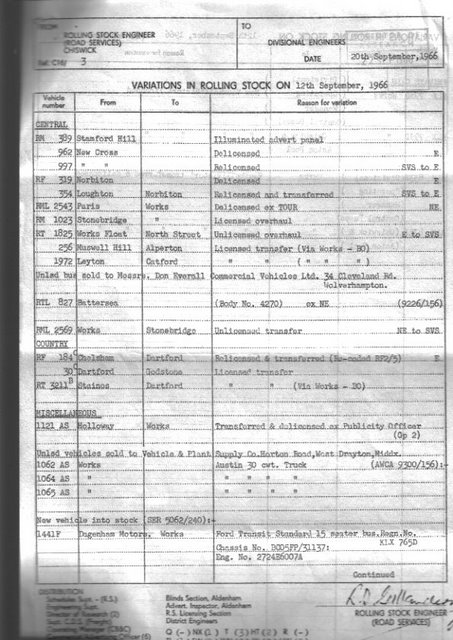 FROM
ROLLING STOCK ENGINEER
(ROAD SERVICES)
CHISWICK
Ref. C16/ 3
TO
DIVISIONAL ENGINEERS
DATE 20th September, 1966
VARIATIONS IN ROLLING STOCK ON 12th September, 1966
Vehicle number From To Reason for variation
CENTRAL
RM 389 Stamford Hill Illuminated advert panel
962 New Cross Delicensed E
997 " " Relicensed SVS to E
RF 319 Norbiton Delicensed E
354 Loughton Norbiton Relicensed and transferred SVS to E
RML 2543 Paris Works Delicensed ex TOUR NE
RM 1023 Stonebridge " Licensed overhaul
RT 1825 Works Float North Street Unlicensed overhaul E to SVS
256 Muswell Hill Alperton Licensed transfer (Via Works - BO)
1972 Leyton Catford " " ( " " " )
Unlsd bus sold to Messrs. Don Everall Commercial Vehicles Ltd. 34 Cleveland Rd.
Wolverhampton.
RTL 827 Battersea (Body No. 4270) ex NE (9226/156)
RML 2569 Works Stonebridge Unlicensed transfer NE to SVS
COUNTRY
RF 184 Chelsham Dartford Relicensed & transferred (Re-coded RF2/3) E
30 Dartford Godstone Licensed transfer
RT 3211 Staines Dartford " " (Via Works - BO)
MISCELLANEOUS
1121 AS Holloway Works Transferred & delicensed ex Publicity Officer
(Op 2)
Unlsd vehicles sold to Vehicle & Plant Supply Co. Horton Road, West Drayton, Middx.
1062 AS Works Austin 30 cwt. Truck (AWCA 9300/156):-
1064 AS " " " " "
1065 AS " " " " "
New vehicle into stock (SER 5062/240):-
1441F Dagenham Motors. Works Ford Transit Standard 15 seater bus. Regn. No.
KLX 765D
Chassis No. BC05FP/31137:
Eng. No. 2724E6007A
Continued
DISTRIBUTION
Schedules Supt. (R.S.)
Engineering Supt.
Director of Research (2)
Supt. C.D.S. (Freight)
Operating Manager (CB&C)
Blinds Section, Aldenham
Advert. Inspector, Aldenham
R.S. Licensing Section
District Engineers
Q (-) NX(1) T (3)HT(2) R (-)
ROLLING STOCK ENGINEER
(ROAD